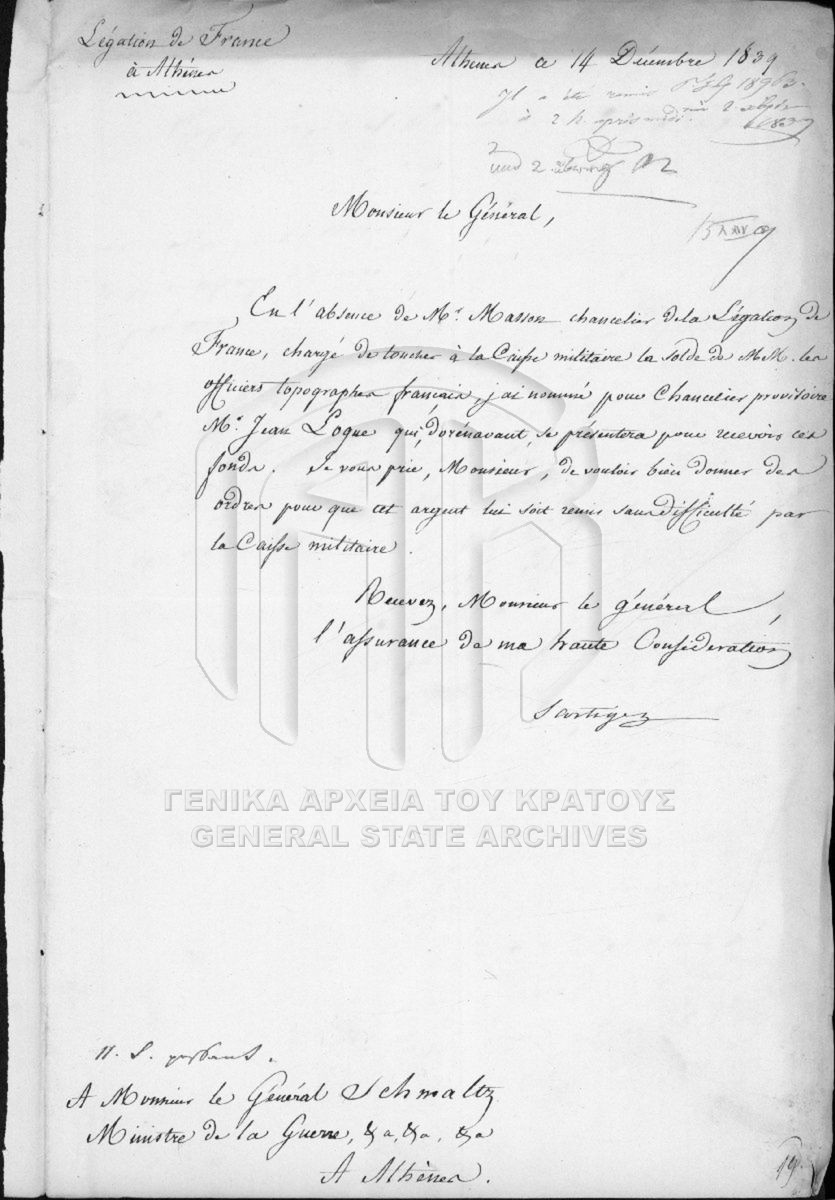 Légation de France
à Athènes
Athènes ce 14 Décembre 1839
Il a été remis
à 2 h. après midi.
Monsieur le Général,
En l'absence de Mr. Masson chancelier de la Légation de
France, chargé de toucher à la Caisse militaire la solde de MM. les
officiers topographes français, j'ai nommé pour Chancelier provisoire
Mr. Jean Logue qui, dorénavant, se présentera pour recevoir ces
fonds. Je vous prie, Monsieur, de vouloir bien donner des
ordres pour que cet argent lui soit remis sans difficulté par
la Caisse militaire.
Recevez, Monsieur le général,
l'assurance de ma haute Considération
Sartiges
ΓΕΝΙΚΑ ΑΡΧΕΙΑ ΤΟΥ ΚΡΑΤΟΥΣ
GENERAL STATE ARCHIVES
A Monsieur le Général Schmaltz
Ministre de la Guerre, &a, &a, &a
A Athènes.
19.